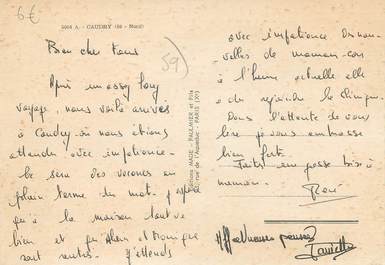 6€
5004 A. - CAUDRY (59 - Nord)
59)
Bien cher tous
Après un assez long
voyage, nous voilà arrivés
à Caudry où nous étions
attendu avec impatience.
le sens des vacances au
plein terme du mot. J'espère
qu'à la maison tout va
bien et qu'Alain et
sont sages. J'attends
Editions MAGE - PAULMIER et Fils
rue de l'Aqueduc - PARIS (X°)
avec impatience des nou-
velles de maman car
à l'heure actuelle elle
a du rejoindre la clinique.
Dans l'attente de vous
lire je vous embrasse
bien fort.
Faites un gros bisou à
maman.
René
Affectueuses pensées
Danielle